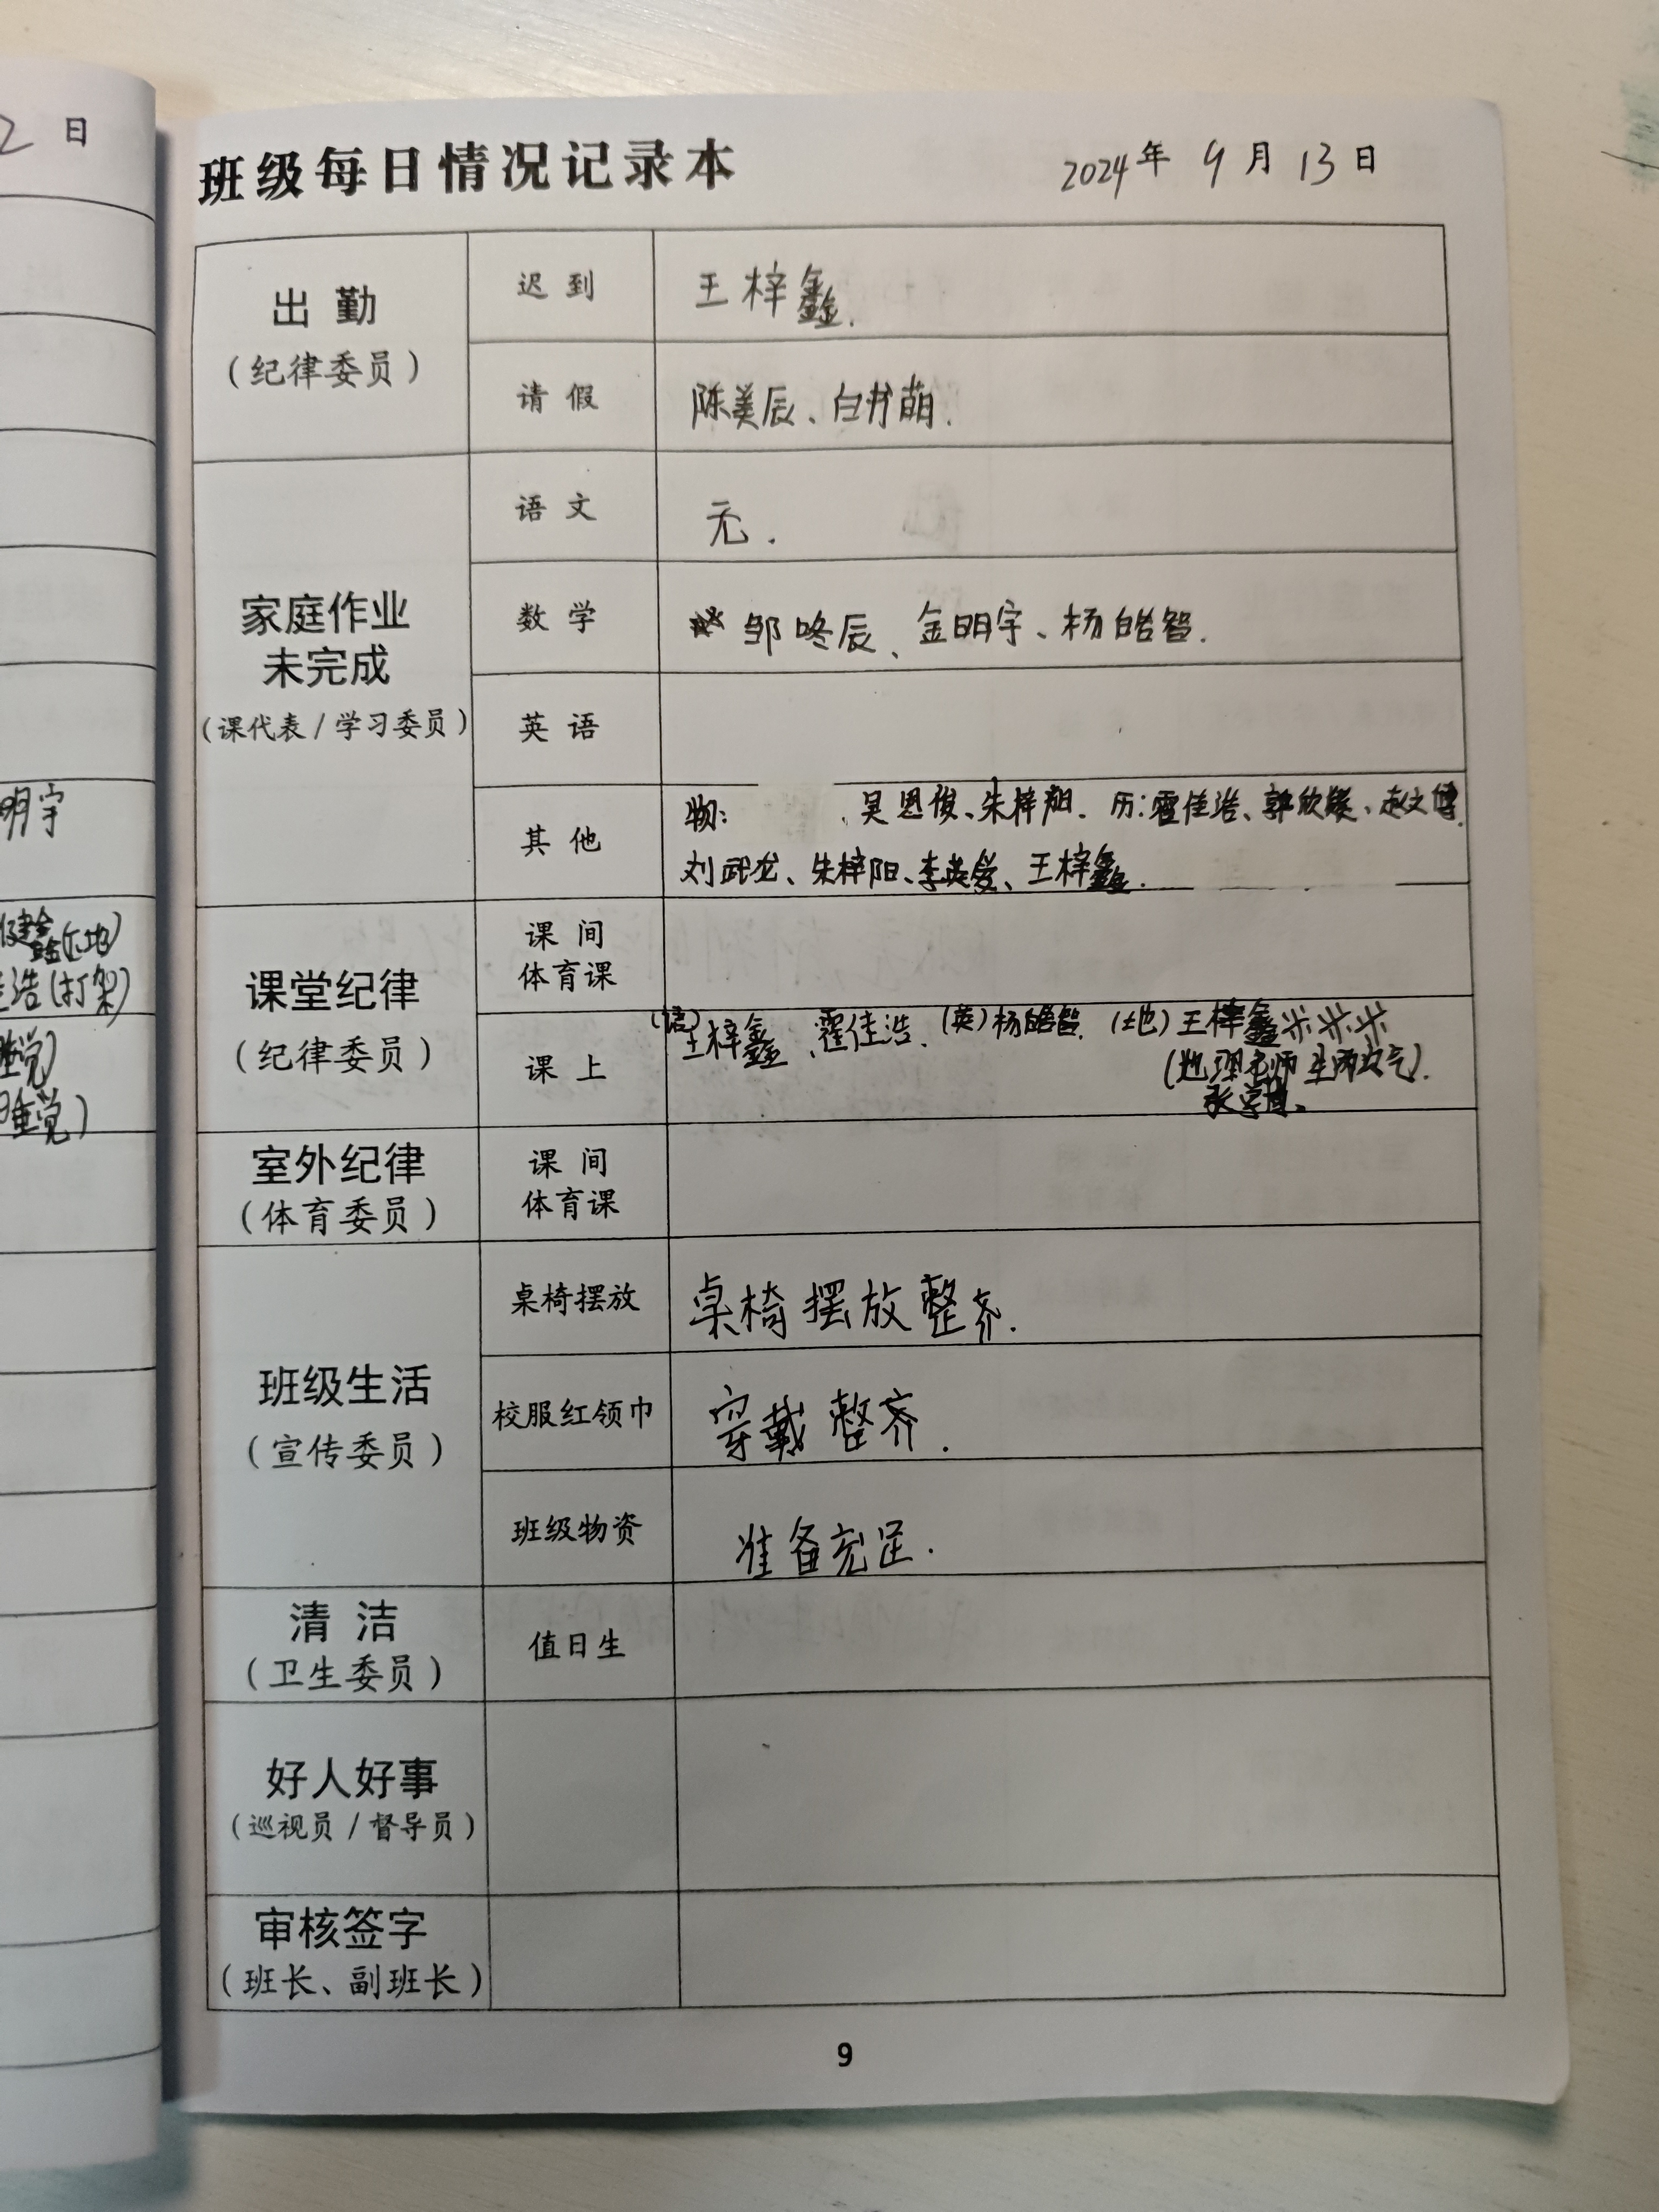 2 日
明宇
浩(打架)
睡觉)
睡觉)
班级每日情况记录本 2024年 9月 13日
出 勤
(纪律委员)
迟 到 王梓鑫.
请 假 陈美辰、白书萌.
家庭作业
未完成
(课代表/学习委员)
语 文 无.
数 学 邹咚辰、金明宇、杨皓智.
英 语
其 他 物: 、吴恩俊、朱梓阳. 历:霍佳浩、郭欣媛、赵文博.
刘武龙、朱梓阳、李英爱、王梓鑫.
课堂纪律
(纪律委员)
课 间
体育课
课 上 (语)王梓鑫、霍佳浩. (英)杨皓智. (地)王梓鑫
(地理老师 生气).
张学博、
室外纪律
(体育委员)
课 间
体育课
班级生活
(宣传委员)
桌椅摆放 桌椅摆放整齐.
校服红领巾 穿戴整齐.
班级物资 准备充足.
清 洁
(卫生委员)
值日生
好人好事
(巡视员/督导员)
审核签字
(班长、副班长)
9